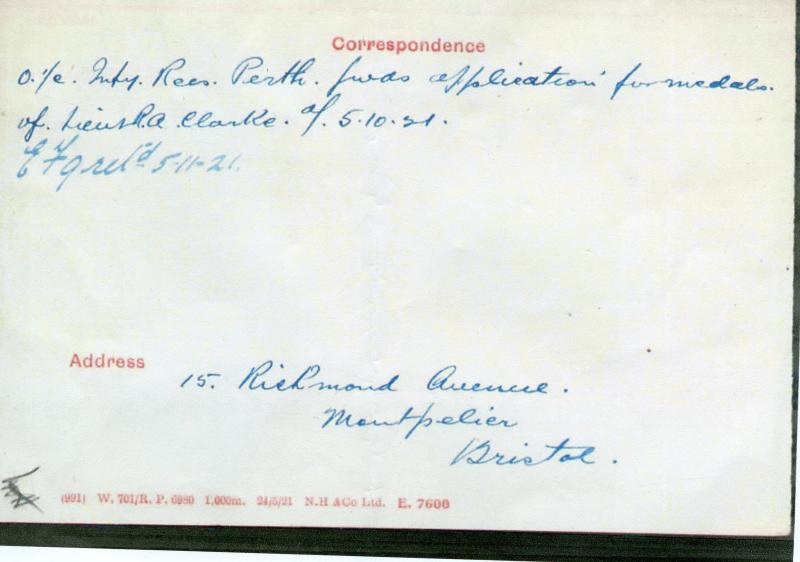 Correspondence
O. i/c. Infy. Recs. Perth. fwds application for medals.
of. Lieut R.A. Clarke. of. 5.10.21.
EF9 retd 5-11-21.
Address
15. Richmond Avenue.
Montpelier
Bristol.
(991) W. 701/R. P. 6980 1,000m. 24/5/21 N.H & Co Ltd. E. 7606